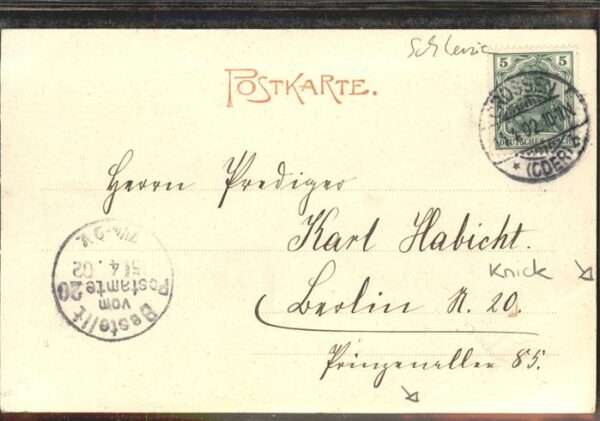 Schlesie
POSTKARTE.
5 5
DEUTSCHES REICH
CROSSEN
02.10-11V
* (ODER) c
Herrn Prediger
Karl Habicht.
Knick
Berlin N. 20.
Prinzenallee 85.
Bestellt
vom
Postamte 20
5/4.02
7½-9V.